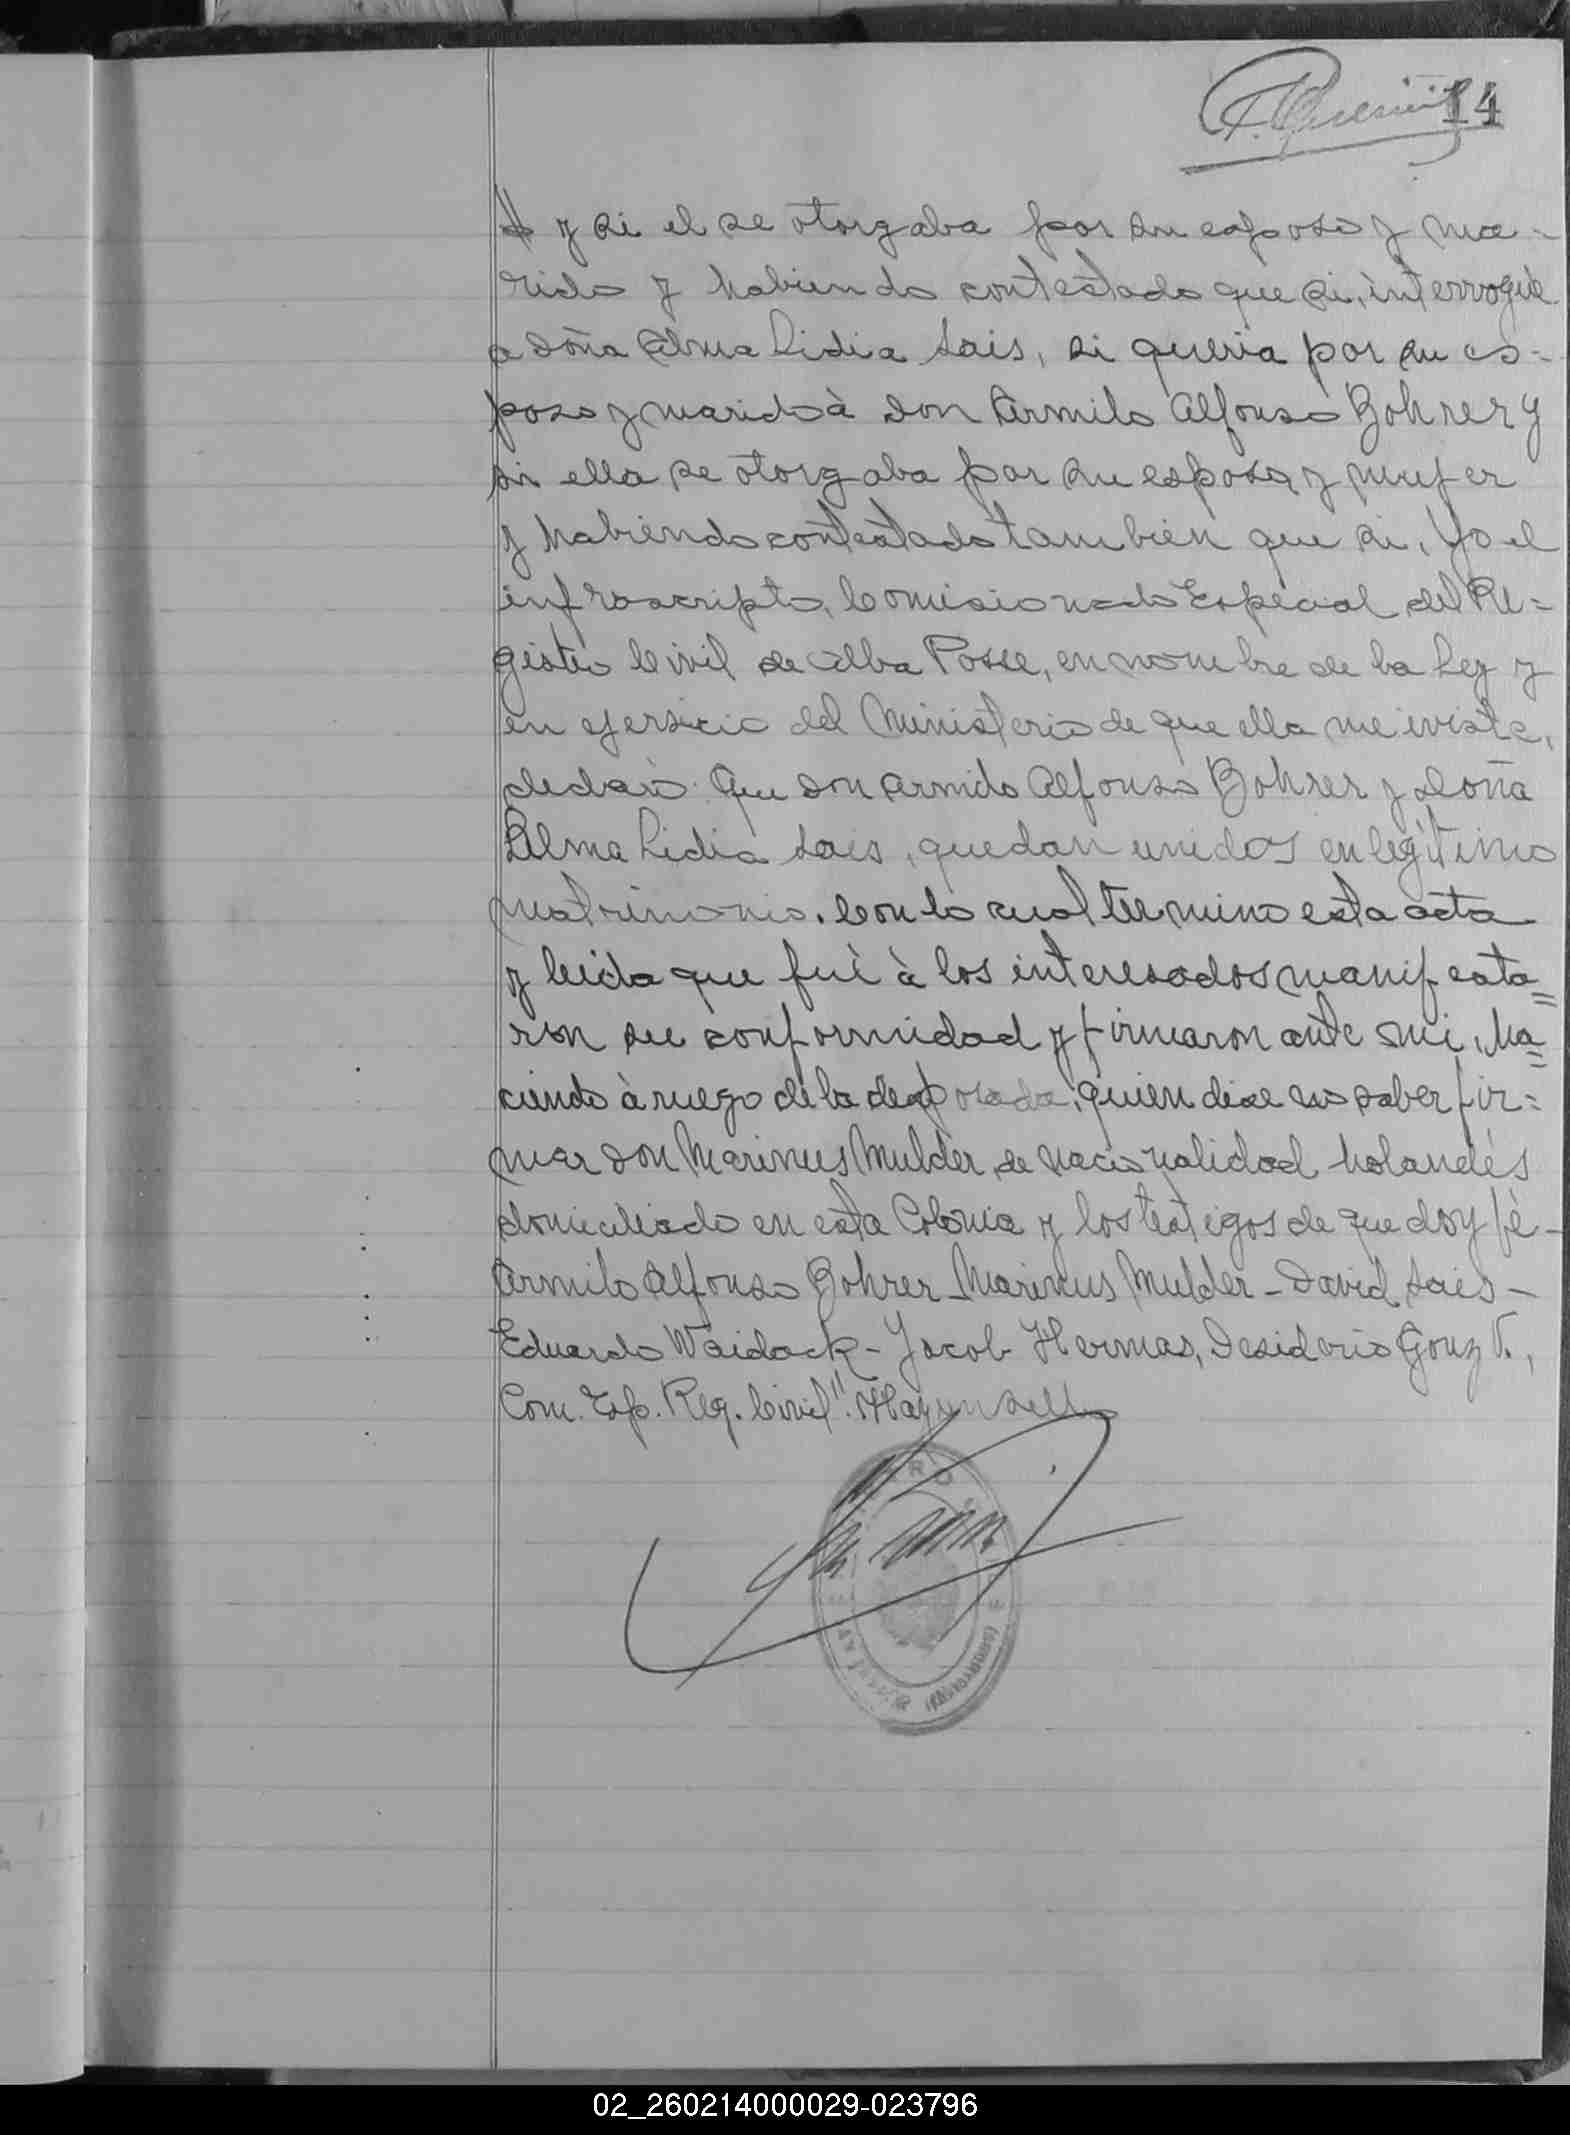 14
y si el se otorgaba por su esposo y ma-
rido y habiendo contestado que si, interrogué
a doña Alma Lidia Sais, si queria por su es-
poso y marido à don Armilo Alfonso Bohrer y
si ella se otorgaba por su esposa y mujer
y habiendo contestado tambien que si, Yo el
infrascripto, Comisionado Especial del Re-
gistro Civil de Alba Posse, en nombre de la Ley y
en ejersicio del Ministerio de que ella me inviste,
declaro: Que don Armilo Alfonso Bohrer y doña
Alma Lidia Sais, quedan unidos en legìtimo
matrimonio. Con lo cual termino esta acta
y leida que fuè à los interesados manifesta=
ron su conformidad y firmaron ante mi, ha=
ciendo à ruego de la desposada, quien dice no saber fir=
mar don Marinus Mulder, de nacionalidad holandés
domiciliado en esta Colonia y los testigos de que doy fè-
Armilo Alfonso Bohrer - Marinus Mulder - David Sais -
Eduardo Waidack - Jacob Hermas, Desiderio Gonz V.,
Com. Esp. Reg. Civil". Hay un sello
02_260214000029-023796